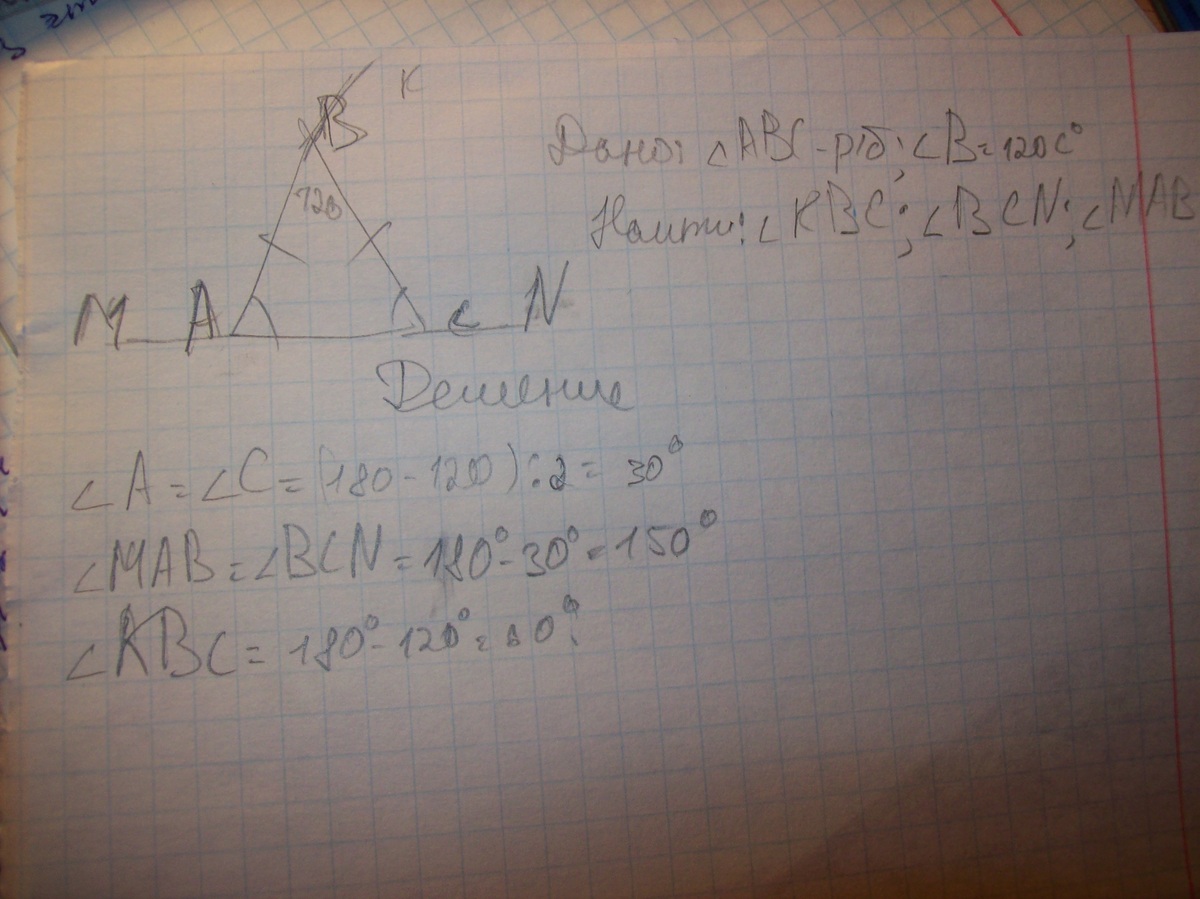 K
B
120
M A C N
Дано: ∠ABC - р/б; ∠B = 120C°
Найти: ∠KBC; ∠BCN; ∠MAB
Решение
∠A = ∠C = (180 - 120) : 2 = 30°
∠MAB = ∠BCN = 180° - 30° = 150°
∠KBC = 180° - 120° = 60°.